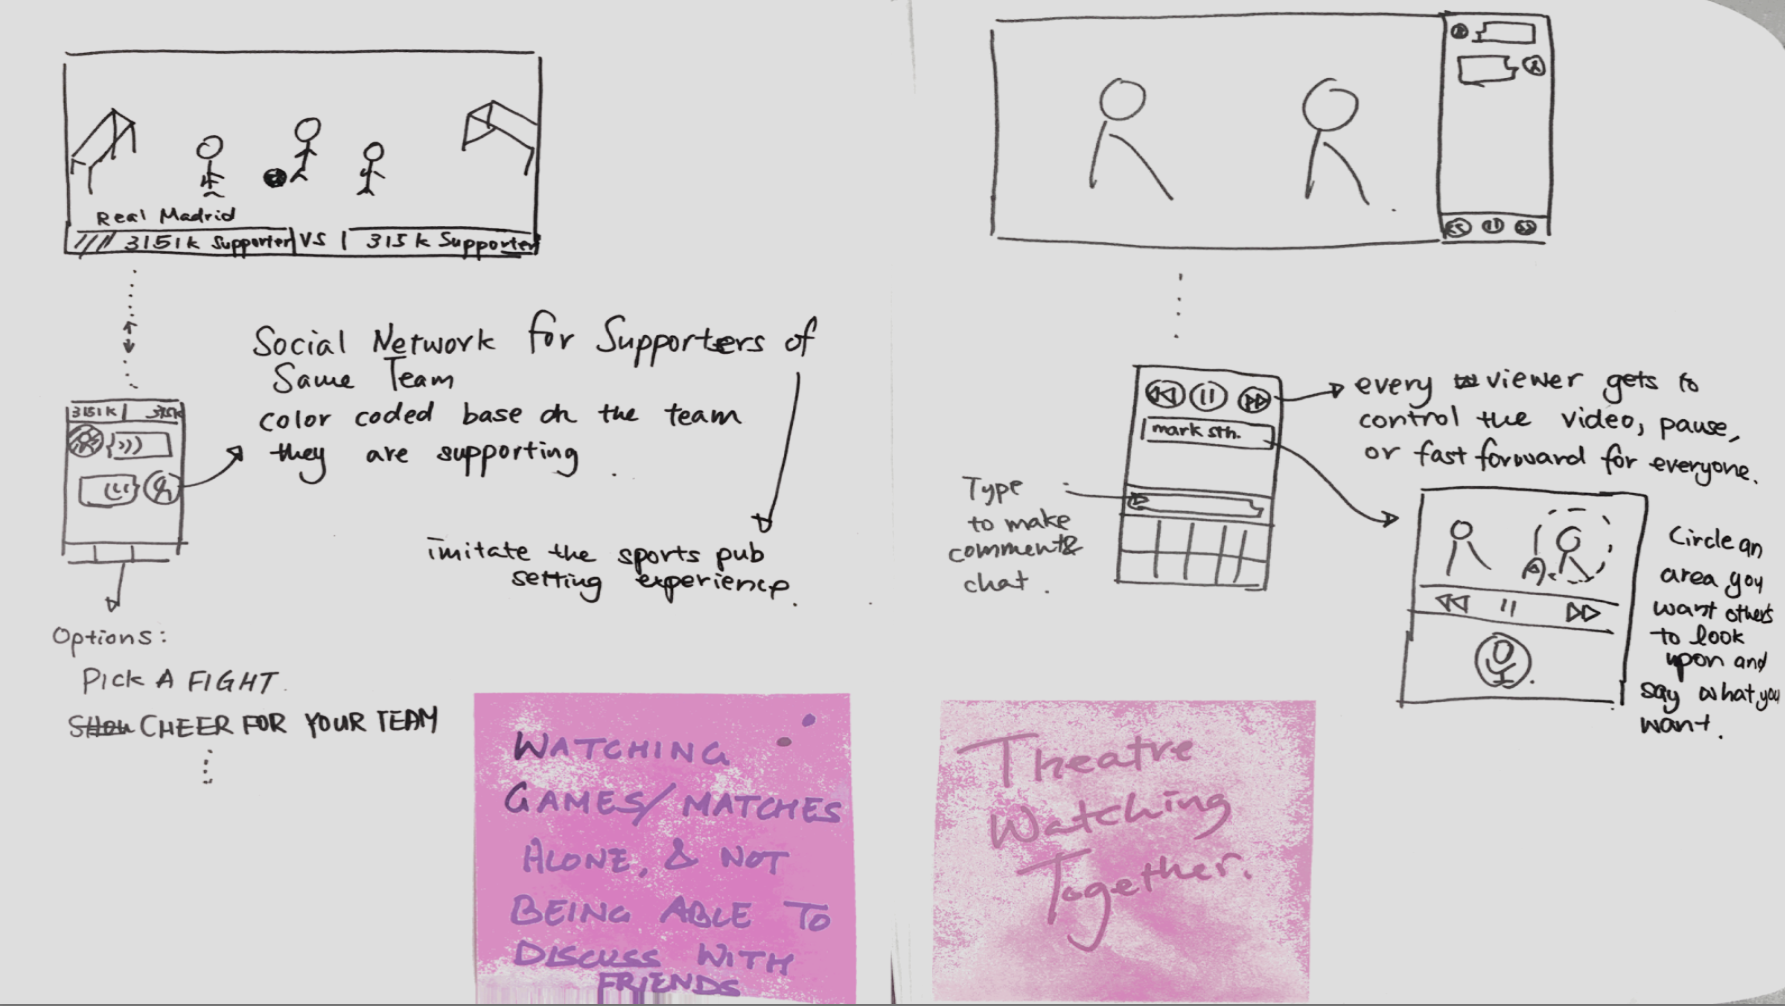 Real Madrid
3151k Supporter VS 315k Supporter
3151k 315k
Social Network for Supporters of
Same Team
color coded base on the team
they are supporting.
imitate the sports pub
setting experience.
Options:
PICK A FIGHT.
CHEER FOR YOUR TEAM
WATCHING
GAMES/MATCHES
ALONE, & NOT
BEING ABLE TO
DISCUSS WITH
FRIENDS
mark sth.
every viewer gets to
control the video, pause,
or fast forward for everyone.
Type
to make
comment &
chat.
Circle an
area you
want others
to look
upon and
say what you
want.
Theatre
Watching
Together.